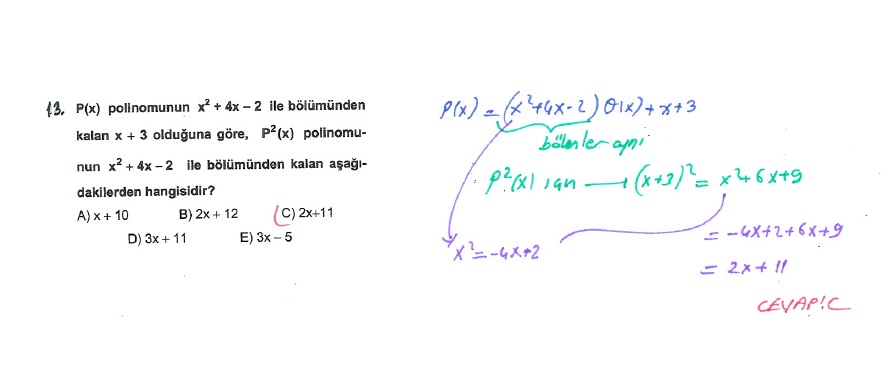 13. P(x) polinomunun x² + 4x – 2 ile bölümünden
kalan x + 3 olduğuna göre, P²(x) polinomu-
nun x² + 4x – 2 ile bölümünden kalan aşağı-
dakilerden hangisidir?
A) x + 10 B) 2x + 12 (C) 2x+11
D) 3x + 11 E) 3x – 5
P(x) = (x²+4x-2) Q(x) + x+3
bölenler aynı
P²(x) için → (x+3)² = x²+6x+9
x² = -4x+2
= -4x+2+6x+9
= 2x+11
CEVAP: C